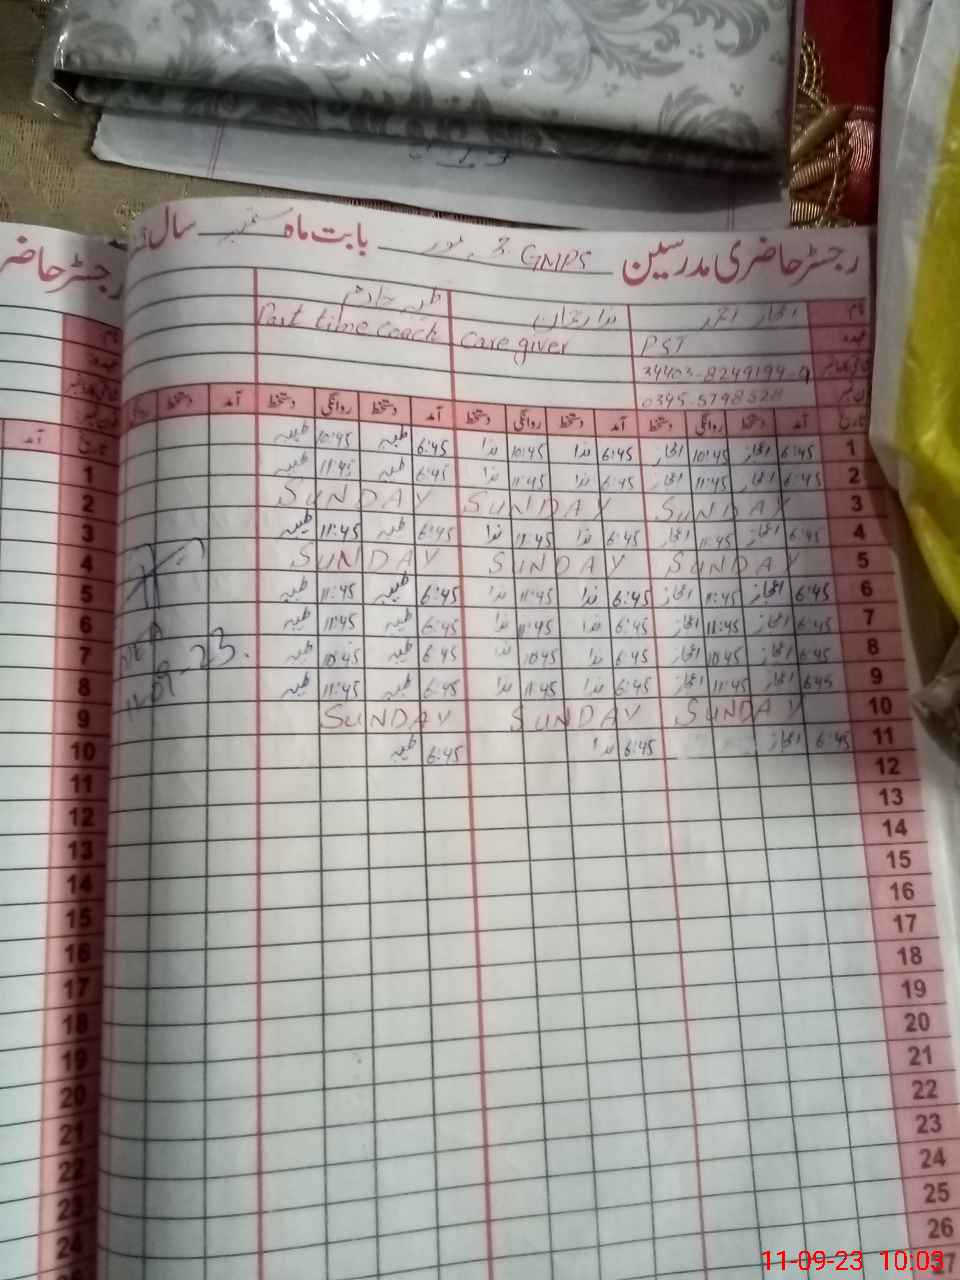 رجسٹر حاضری مدرسین GMPS بابت ماہ ستمبر سال
نام
عہدہ PST Care giver Part time coach
34403-8249194-9
آمد دستخط روانگی دستخط آمد دستخط روانگی دستخط آمد دستخط روانگی دستخط آمد دستخط روانگی
تاریخ
1 6:45 اعجاز 10:45 اعجاز 6:45 ندا 10:45 ندا 6:45 طیبہ 10:45 طیبہ
2 6:45 اعجاز 11:45 اعجاز 6:45 ندا 11:45 ندا 6:45 طیبہ 11:45 طیبہ
3 SUNDAY SUNDAY SUNDAY
4 6:45 اعجاز 11:45 اعجاز 6:45 ندا 11:45 ندا 6:45 طیبہ 11:45 طیبہ
5 SUNDAY SUNDAY SUNDAY
6 6:45 اعجاز 11:45 اعجاز 6:45 ندا 11:45 ندا 6:45 طیبہ 11:45 طیبہ
7 6:45 اعجاز 11:45 اعجاز 6:45 ندا 11:45 ندا 6:45 طیبہ 11:45 طیبہ
8 6:45 اعجاز 10:45 اعجاز 6:45 ندا 10:45 ندا 6:45 طیبہ 10:45 طیبہ
9 6:45 اعجاز 11:45 اعجاز 6:45 ندا 11:45 ندا 6:45 طیبہ 11:45 طیبہ
10 SUNDAY SUNDAY SUNDAY
11 6:45 اعجاز 6:45 ندا 6:45 طیبہ
12
13
14
15
16
17
18
19
20
21
22
23
24
25
26
27
11-09-23.
رجسٹر حاضر
نام
عہدہ
تاریخ آمد
1
2
3
4
5
6
7
8
9
10
11
12
13
14
15
16
17
18
19
20
21
22
23
24
11-09-23 10:03